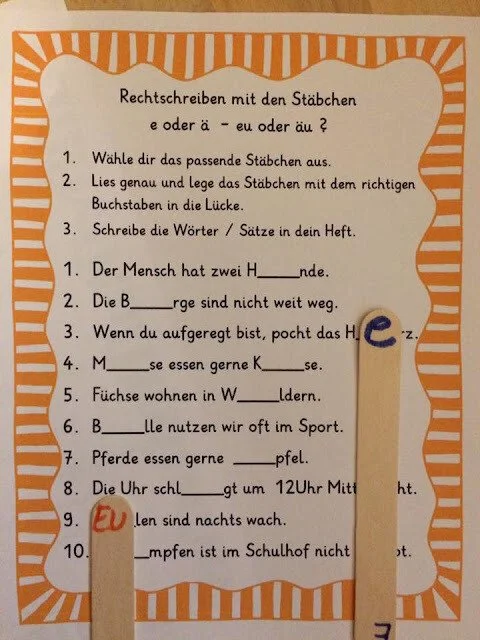 Rechtschreiben mit den Stäbchen
e oder ä - eu oder äu ?
1. Wähle dir das passende Stäbchen aus.
2. Lies genau und lege das Stäbchen mit dem richtigen
Buchstaben in die Lücke.
3. Schreibe die Wörter / Sätze in dein Heft.
1. Der Mensch hat zwei H_____nde.
2. Die B_____rge sind nicht weit weg.
3. Wenn du aufgeregt bist, pocht das H_erz.
4. M_____se essen gerne K_____se.
5. Füchse wohnen in W_____ldern.
6. B_____lle nutzen wir oft im Sport.
7. Pferde essen gerne _____pfel.
8. Die Uhr schl_____gt um 12Uhr Mitt ht.
9. EU_len sind nachts wach.
10. __mpfen ist im Schulhof nicht t.
7